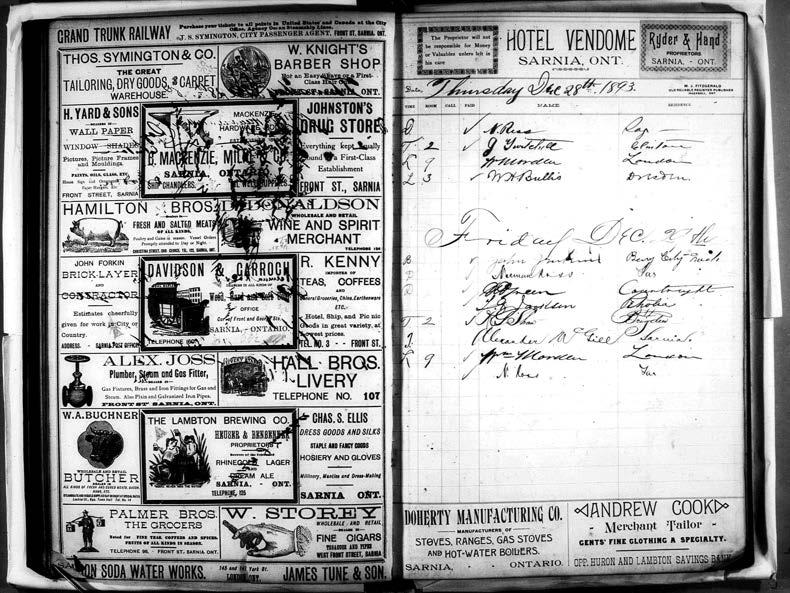 GRAND TRUNK RAILWAY
Purchase your tickets to all points in United States and Canada at the City
Office, Agency Ocean Steamship Lines.
J. S. SYMINGTON, CITY PASSENGER AGENT, FRONT ST, SARNIA, ONT.
THOS. SYMINGTON & CO.
THE GREAT
TAILORING, DRY GOODS, & CARPET
WAREHOUSE.
W. KNIGHT'S
BARBER SHOP
For an Easy Shave or a First-
Class Hair Cut
FRONT ST., SARNIA, ONT.
H. YARD & SONS
DEALERS IN
WALL PAPER
WINDOW SHADES
Pictures, Picture Frames
and Mouldings.
PAINTS, OILS, GLASS, ETC.
FRONT STREET, SARNIA
MACKENZIE
HARDWARE
B. MACKENZIE, MILNE & CO.
SARNIA, ONTARIO
SHIP CHANDLERS.
OIL WELL SUPPLIES
JOHNSTON'S
DRUG STORE
Everything kept usually
found in a First-Class
Establishment
FRONT ST., SARNIA
HAMILTON BROS.
Dealers in
FRESH AND SALTED MEATS
OF ALL KINDS,
Poultry and Game in season. Vessel Orders
Promptly attended to Day or Night.
D. DONALDSON
WHOLESALE AND RETAIL
WINE AND SPIRIT
MERCHANT
TELEPHONE
JOHN FORKIN
BRICK-LAYER
AND
CONTRACTOR
Estimates cheerfully
given for work in City or
Country.
ADDRESS. - SARNIA POST OFFICE
DAVIDSON & GARROCH
Wood, Hard and Soft Coal
OFFICE
Cor. of Front and George Sts.
SARNIA, - ONTARIO.
TELEPHONE
R. KENNY
IMPORTER OF
TEAS, COFFEES
AND
General Groceries, China, Earthenware
ETC.
Hotel, Ship, and Pic nic
Goods in great variety, at
lowest prices.
TEL. NO. 3 - - FRONT ST.
ALEX. JOSS
Plumber, Steam and Gas Fitter,
DEALER IN
Gas Fixtures, Brass and Iron Fittings for Gas and
Steam. Also Plain and Galvanized Iron Pipes.
FRONT ST SARNIA, ONT.
HALL BROS.
LIVERY
TELEPHONE NO. 107
W. A. BUCHNER
WHOLESALE AND RETAIL
BUTCHER
THE LAMBTON BREWING CO.
HEUSER &
PROPRIETORS
Brewers of the Celebrated
RHINEGOLD LAGER
AND
CREAM ALE
SARNIA, - ONT.
TELEPHONE, 125
CHAS. S. ELLIS
DRESS GOODS AND SILKS
STAPLE AND FANCY GOODS
HOSIERY AND GLOVES
Millinery, Mantles and Dress-Making
SARNIA ONT.
PALMER BROS.
THE GROCERS
Noted for FINE TEAS, COFFEES AND SPICES.
FRUITS OF ALL KINDS IN SEASON.
TELEPHONE 96. - FRONT ST. SARNIA, ONT.
W. STOREY
WHOLESALE AND RETAIL
DEALER IN
FINE CIGARS
TOBACCOS AND PIPES
WEST FRONT STREET, SARNIA
SODA WATER WORKS.
145 and 141 York St.
LONDON, ONT.
JAMES TUNE & SON.
The Proprietor will not
be responsible for Money
or Valuables unless left in
his care
HOTEL VENDOME
SARNIA, ONT.
Ryder & Hand
PROPRIETORS
SARNIA, - ONT.
Date, Thursday Dec 28th 1893.
W. J. FITZGERALD
OLD RELIABLE REGISTER PUBLISHER
INGERSOLL, ONT
TIME ROOM CALL PAID NAME RESIDENCE
N. Ross
T 2 J
L 9 Wm Morden London
L 3 W H Bullis Dresden
Friday Dec. 29th
John
Norman Ross
Green Courtright
T 2
Alexander McGill Sarnia
L 9 Wm Morden London
N. Ross
DOHERTY MANUFACTURING CO.
MANUFACTURERS OF
STOVES, RANGES, GAS STOVES
AND HOT-WATER BOILERS.
SARNIA, ONTARIO.
ANDREW COOK
- Merchant Tailor -
GENTS' FINE CLOTHING A SPECIALTY.
OPP. HURON AND LAMBTON SAVINGS BANK